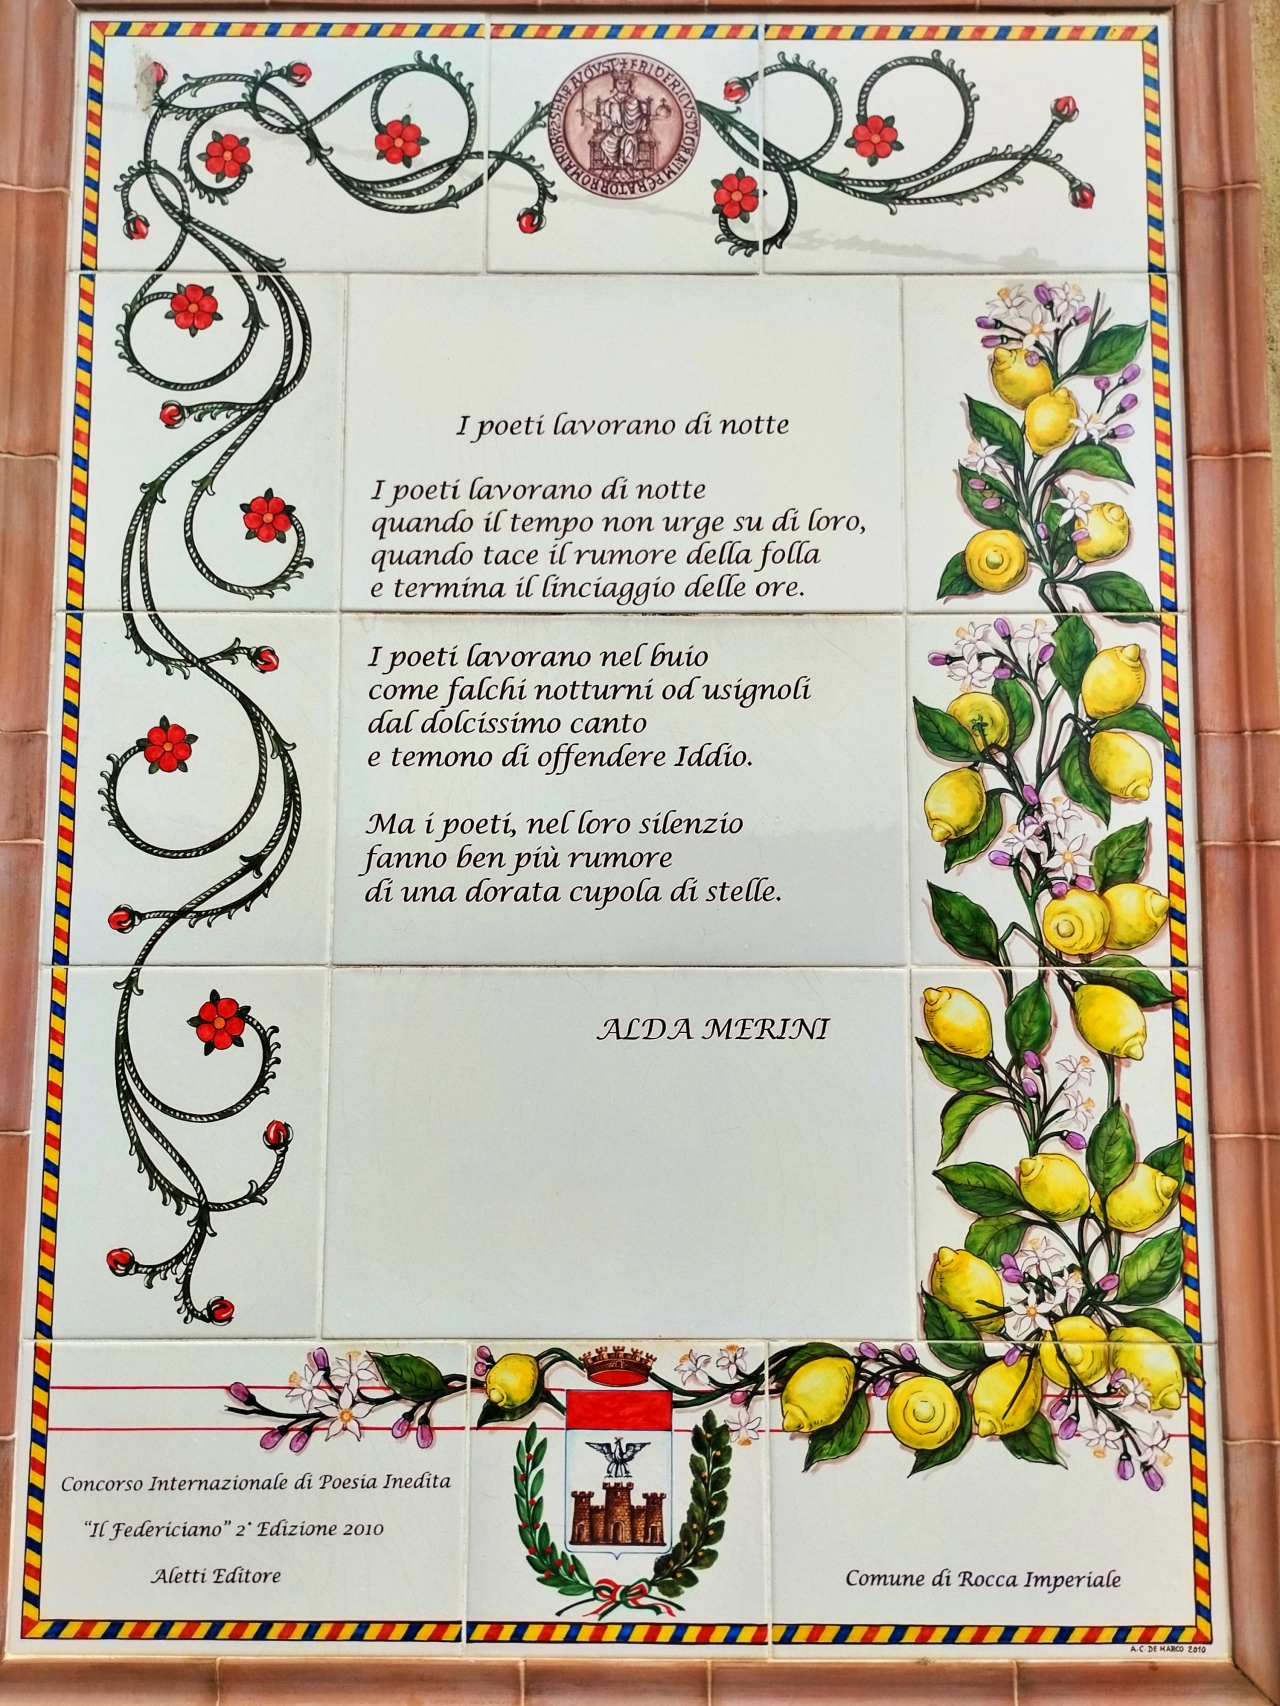 ROMANORV SEMP AVGVST FRIDERICVS DI GRA IMPERATOR
I poeti lavorano di notte
I poeti lavorano di notte
quando il tempo non urge su di loro,
quando tace il rumore della folla
e termina il linciaggio delle ore.
I poeti lavorano nel buio
come falchi notturni od usignoli
dal dolcissimo canto
e temono di offendere Iddio.
Ma i poeti, nel loro silenzio
fanno ben più rumore
di una dorata cupola di stelle.
ALDA MERINI
Concorso Internazionale di Poesia Inedita
“Il Federiciano” 2° Edizione 2010
Aletti Editore
Comune di Rocca Imperiale
A.C. DE MARCO 2010